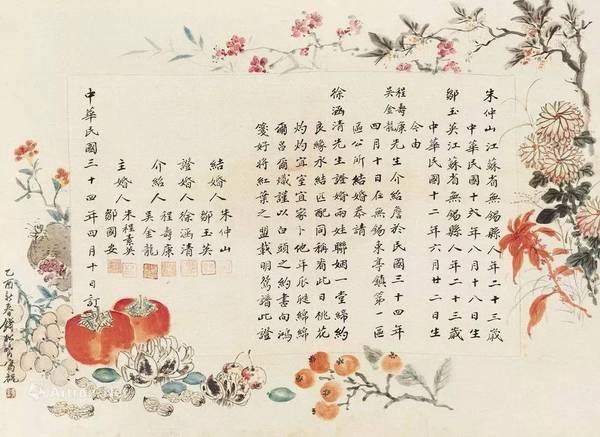 朱仲山江蘇省無錫縣人年二十三歲
中華民國十年八月十八日生
鄒玉英江蘇省無錫縣人年二十三歲
中華民國十二年六月廿二日生
今由
程壽康
吳金龍
先生介紹詹於民國三十四年
四月十日在無錫東亭鎮第一區
區公所結婚恭請
徐涵清先生證婚兩姓聯姻一堂締約
良緣永結匹配同稱看此日桃花
灼灼宜室宜家卜他年瓜瓞綿綿
爾昌爾熾謹以白頭之約書向鴻
箋好將紅葉之盟載明鴛譜此證
結婚人
朱仲山
鄒玉英
證婚人
徐涵清
介紹人
程壽康
吳金龍
主婚人
朱程素英
鄒國安
中華民國三十四年四月十日訂
乙酉新春錢松